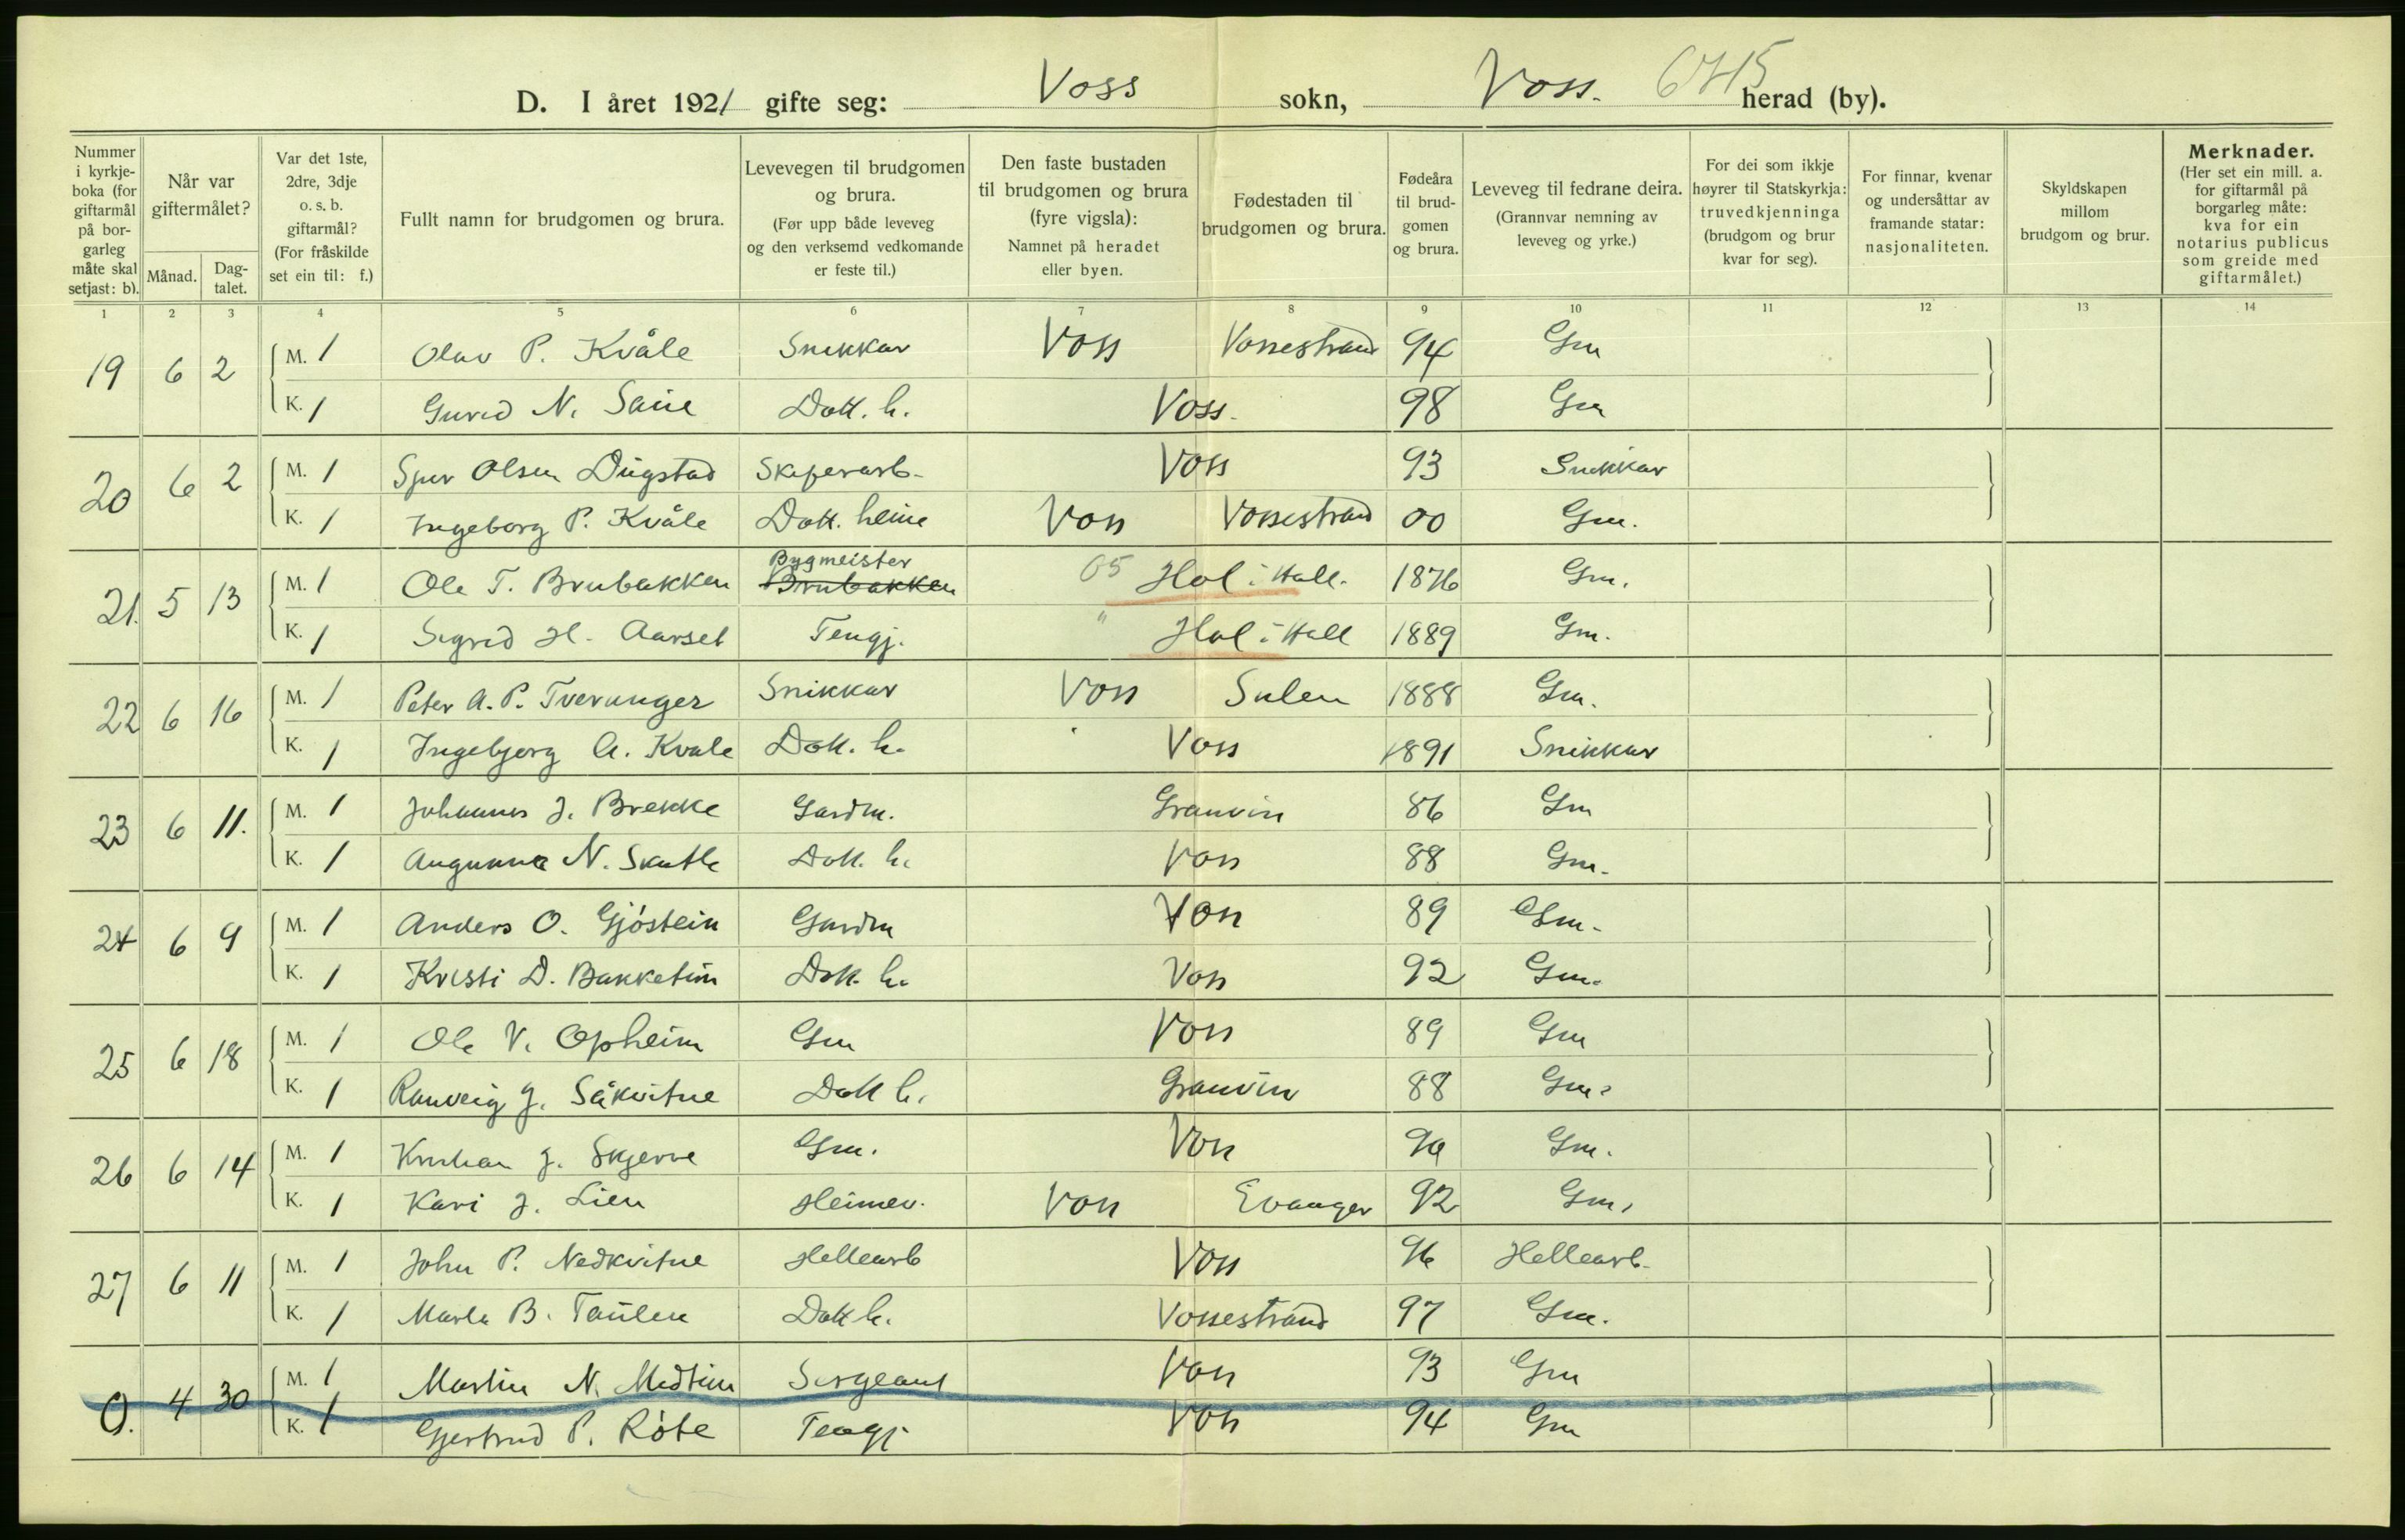 D. I året 1921 gifte seg: Voss sokn, Voss. 6715 herad (by).
Nummer i kyrkjeboka (for giftarmål på borgarleg måte skal setjast: b).
Når var giftermålet?
Månad.
Dag-talet.
Var det 1ste, 2dre, 3dje o. s. b. giftarmål? (For fråskilde set ein til: f.)
Fullt namn for brudgomen og brura.
Levevegen til brudgomen og brura. (Før upp både leveveg og den verksemd vedkomande er feste til.)
Den faste bustaden til brudgomen og brura (fyre vigsla): Namnet på heradet eller byen.
Fødestaden til brudgomen og brura.
Fødeåra til brudgomen og brura.
Leveveg til fedrane deira. (Grannvar nemning av leveveg og yrke.)
For dei som ikkje høyrer til Statskyrkja: truvedkjenninga (brudgom og brur kvar for seg).
For finnar, kvenar og undersåttar av framande statar: nasjonaliteten.
Skyldskapen millom brudgom og brur.
Merknader. (Her set ein mill. a. for giftarmål på borgarleg måte: kva for ein notarius publicus som greide med giftarmålet.)
1 2 3 4 5 6 7 8 9 10 11 12 13 14
19 6 2 M. 1 Olav P. Kvåle Snikkar Voss Vossestrand 94 Gm
K. 1 Gurid N. Saue Dott. h. Voss. 98 Gm
20 6 2 M. 1 Sjur Olsen Dugstad Skiferarb. Voss 93 Snikkar
K. 1 Ingeborg P. Kvåle Dott. heime Voss Vossestrand 00 Gm.
21. 5 13 M. 1 Ole T. Brubakken Bygmeister Brubakken 65 Hol i Hall. 1876 Gm.
K. 1 Sigrid H. Aarset Tengj. " Hol i Hall 1889 Gm.
22 6 16 M. 1 Peter A. P. Tveranger Snikkar Voss Sulen 1888 Gm.
K. 1 Ingebjørg A. Kvale Dott. h. Voss 1891 Snikkar
23 6 11. M. 1 Johannes J. Brekke Gardm. Granvin 86 Gm
K. 1 Angunna N. Skutle Dott. h. Voss 88 Gm.
24 6 9 M. 1 Anders O. Gjøstein Gardm Voss 89 Gm.
K. 1 Kristi D. Bakketun Dott. h. Voss 92 Gm.
25 6 18 M. 1 Ole V. Opheim Gm Voss 89 Gm
K. 1 Ranveig J. Såkvitne Dott h. Granvin 88 Gm.
26 6 14 M. 1 Kristian J. Skjerve Gm. Voss 90 Gm.
K. 1 Kari J. Lien Heimev. Voss Evanger 92 Gm.
27 6 11 M. 1 John P. Nedkvitne Hellearb Voss 96 Hellearb.
K. 1 Marta B. Taulen Dott h. Vossestrand 97 Gm.
0. 4 30 M. 1 Martin N. Midtun Sergeant Voss 93 Gm
K. 1 Gjertrud P. Røte Tengj. Voss 94 Gm